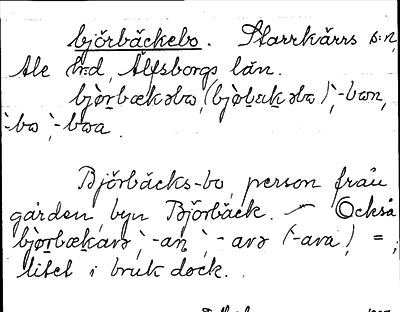 björbäckebo. Starrkärrs s:n,
Ale h:d, Älfsborgs län.
bjòṛbækəbω, (bjòḅækəbω), -bωn,
-bω, -bωa.
Björbäcks-bo, person från
gården, byn Björbäck. — Också
bjòṛbækarə, -aṇ, -arə (-ara), =,
litet i bruk dock.